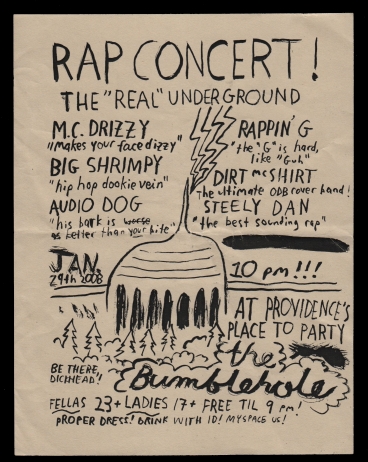 RAP CONCERT!
THE "REAL" UNDERGROUND
M.C. DRIZZY
"makes your face dizzy"
BIG SHRIMPY
"hip hop dookie vein"
AUDIO DOG
"his bark is worse
as better than your bite"
RAPPIN' G
"the "G" is hard,
like "Guh"
DIRT McSHIRT
the ultimate ODB cover band!
STEELY DAN
"the best sounding rap"
JAN.
29th 2008
10 pm!!!
AT PROVIDENCE'S
PLACE TO PARTY
the
Bumblehole
BE THERE,
DICKHEAD!
FELLAS 23+ LADIES 17+ FREE TIL 9 pm!
PROPER DRESS! DRINK WITH ID! MYSPACE US!